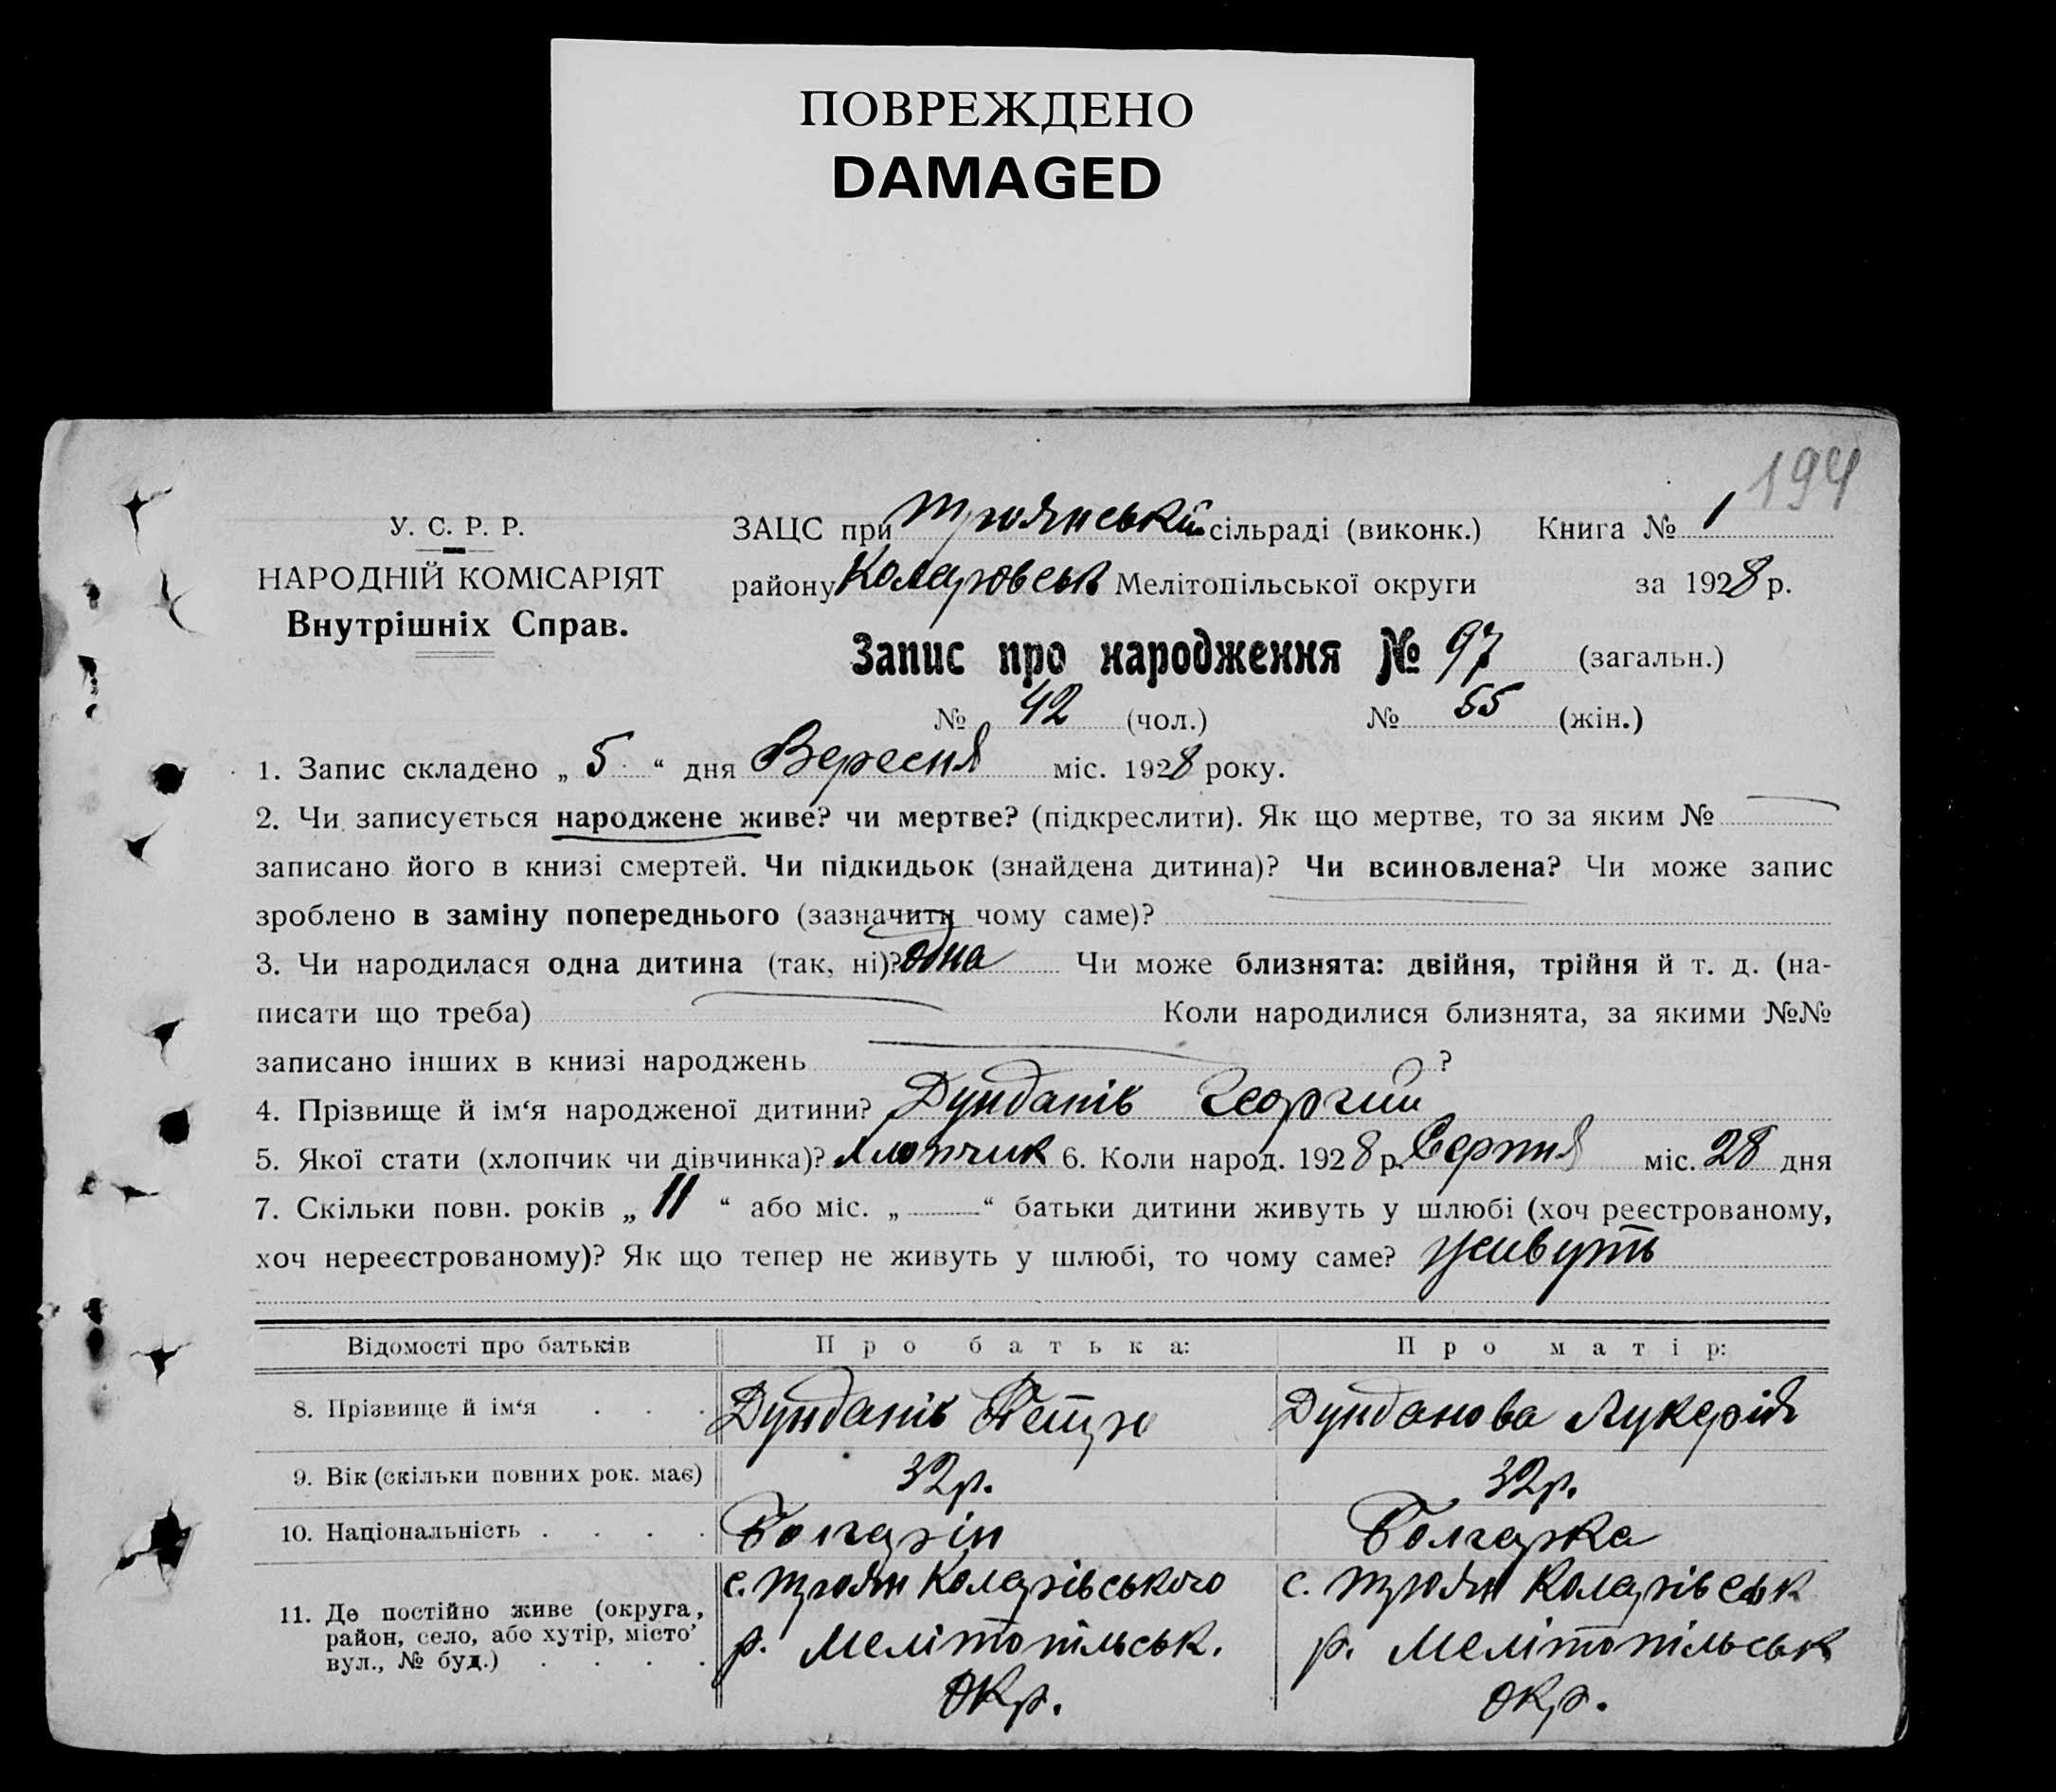 ПОВРЕЖДЕНО
DAMAGED
194
У. С. Р. Р.
НАРОДНІЙ КОМІСАРІЯТ
Внутрішніх Справ.
ЗАЦС при Троянській сільраді (виконк.) Книга № 1
району Коларовськ Мелітопільської округи за 1928 р.
Запис про народження № 97 (загальн.)
№ 42 (чол.) № 55 (жін.)
1. Запис складено „ 5 “ дня Вересня міс. 1928 року.
2. Чи записується народжене живе? чи мертве? (підкреслити). Як що мертве, то за яким №
записано його в книзі смертей. Чи підкидьок (знайдена дитина)? Чи всиновлена? Чи може запис
зроблено в заміну попереднього (зазначити чому саме)?
3. Чи народилася одна дитина (так, ні)? одна Чи може близнята: двійня, трійня й т. д. (на-
писати що треба) Коли народилися близнята, за якими №№
записано інших в книзі народжень ?
4. Прізвище й ім‘я народженої дитини? Дунданів Георгий
5. Якої стати (хлопчик чи дівчинка)? хлопчик 6. Коли народ. 1928 р. Серпня міс. 28 дня
7. Скільки повн. років „ 11 “ або міс. „ — “ батьки дитини живуть у шлюбі (хоч реєстрованому,
хоч нереєстрованому)? Як що тепер не живуть у шлюбі, то чому саме? живуть
Відомості про батьків Про батька: Про матір:
8. Прізвище й ім‘я . . . Дунданів Петро Дунданова Лукерія
9. Вік (скільки повних рок. має) 32 р. 32 р.
10. Національність . . . . Болгарін Болгарка
11. Де постійно живе (округа, район, село, або хутір, місто’ вул., № буд.) . . . .
с. Троян Коларівського
р. Мелітопільськ.
окр.
с. Троян Коларівськ
р. Мелітопільськ
окр.